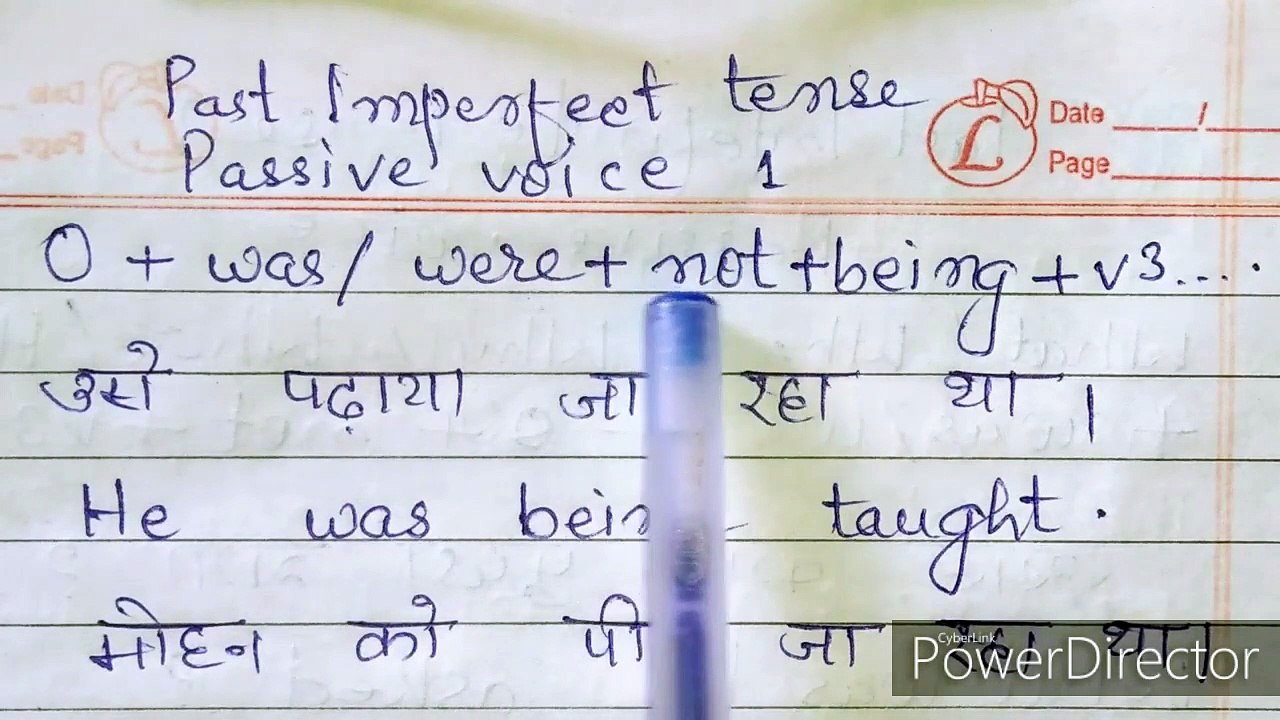 Past Imperfect tense
Date / 
Passive voice 1
Page
O + was/ were + not + being + v3....
उसे पढ़ाया जा रहा था।
He was taught.
मोहन को जा रहा था।
CyberLink
PowerDirector